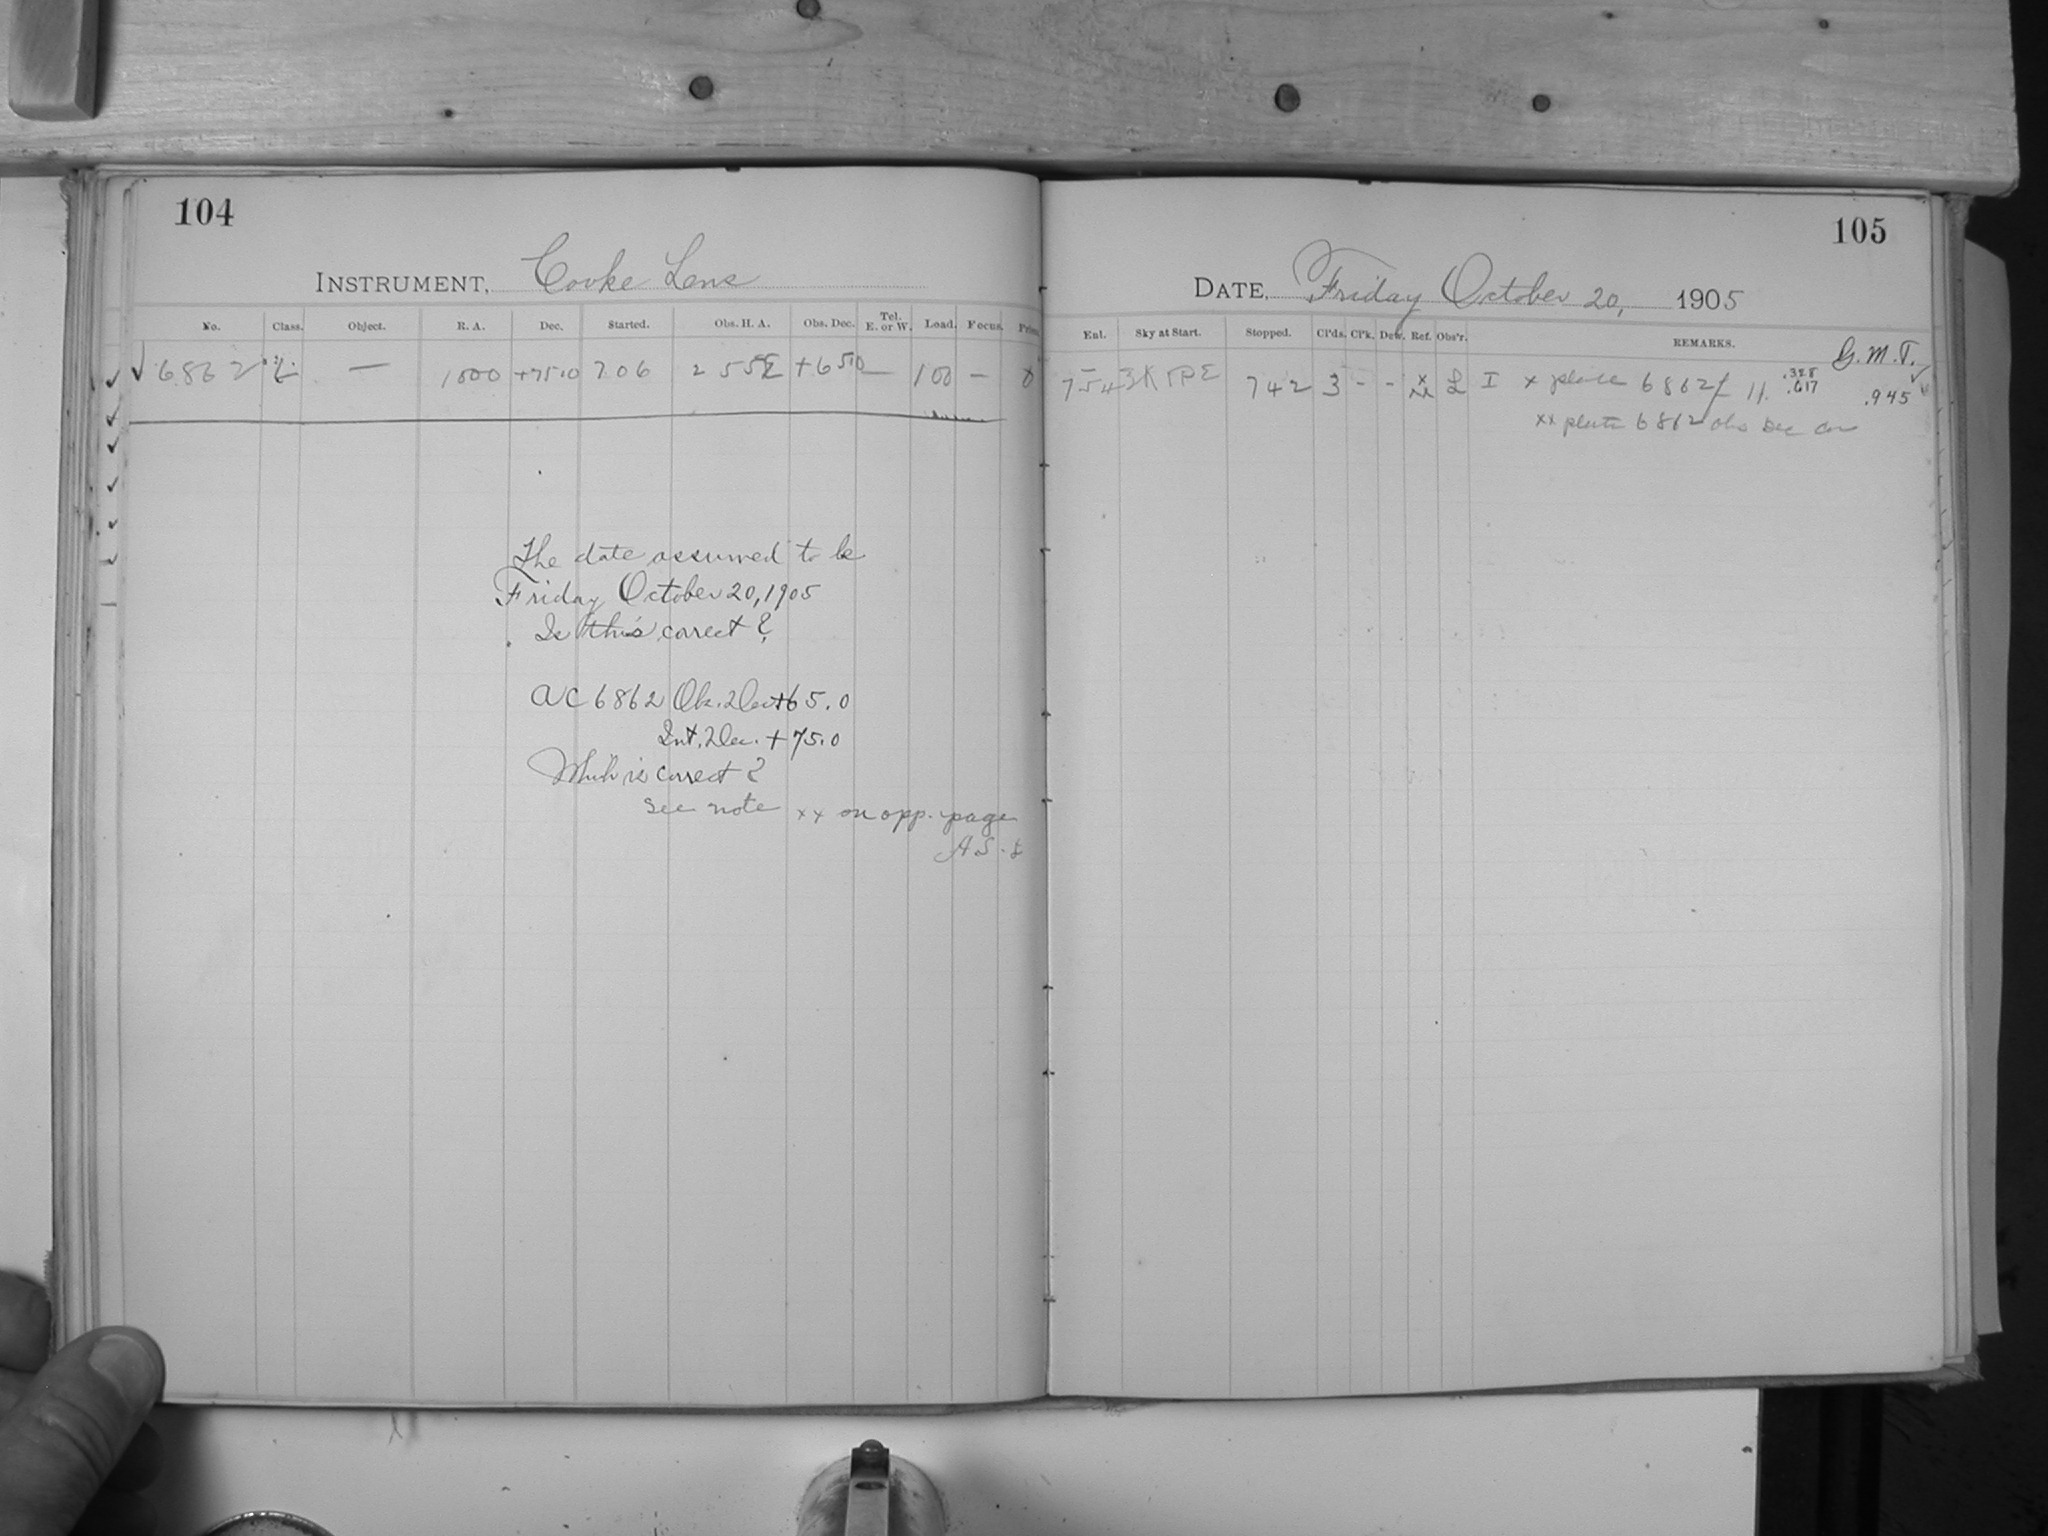 104
INSTRUMENT, Cooke Lens
No. Class. Object. R. A. Dec. Started. Obs. H. A. Obs. Dec. Tel. E. or W. Load. Focus. Prism
6862 — 1000 +75.0 706 2 55E +65.0 — 100 — 0
The date assumed to be
Friday October 20, 1905
Is this correct?
AC 6862 Ob. Dec +65.0
Int. Dec. +75.0
Which is correct?
see note xx on opp. page
A S. L
105
DATE, Friday October 20, 1905
Ent. Sky at Start. Stopped. Cl'ds. Cl'k. Dew. Ref. Obs'r. REMARKS. G. M. T.
754 742 3 - - x L I x plate 6862 f 11. .328 .617 .945
xx plate 6862 obs Dec Cor